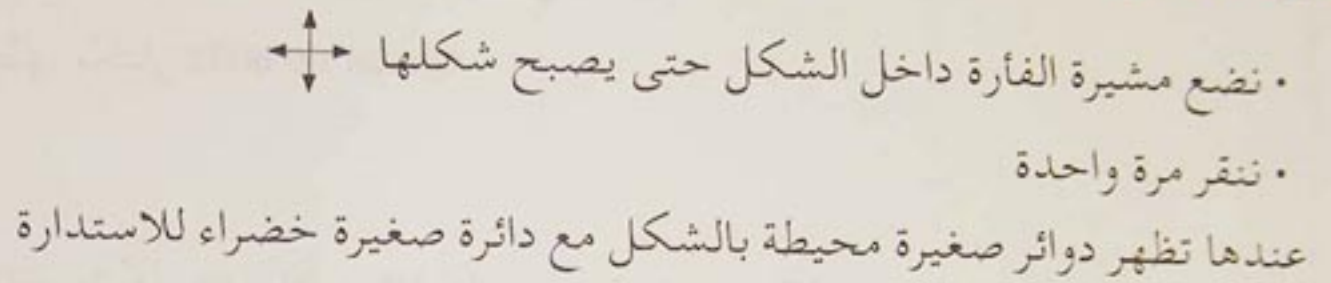 • نضع مشيرة الفأرة داخل الشكل حتى يصبح شكلها
• ننقر مرة واحدة
عندها تظهر دوائر صغيرة محيطة بالشكل مع دائرة صغيرة خضراء للاستدارة